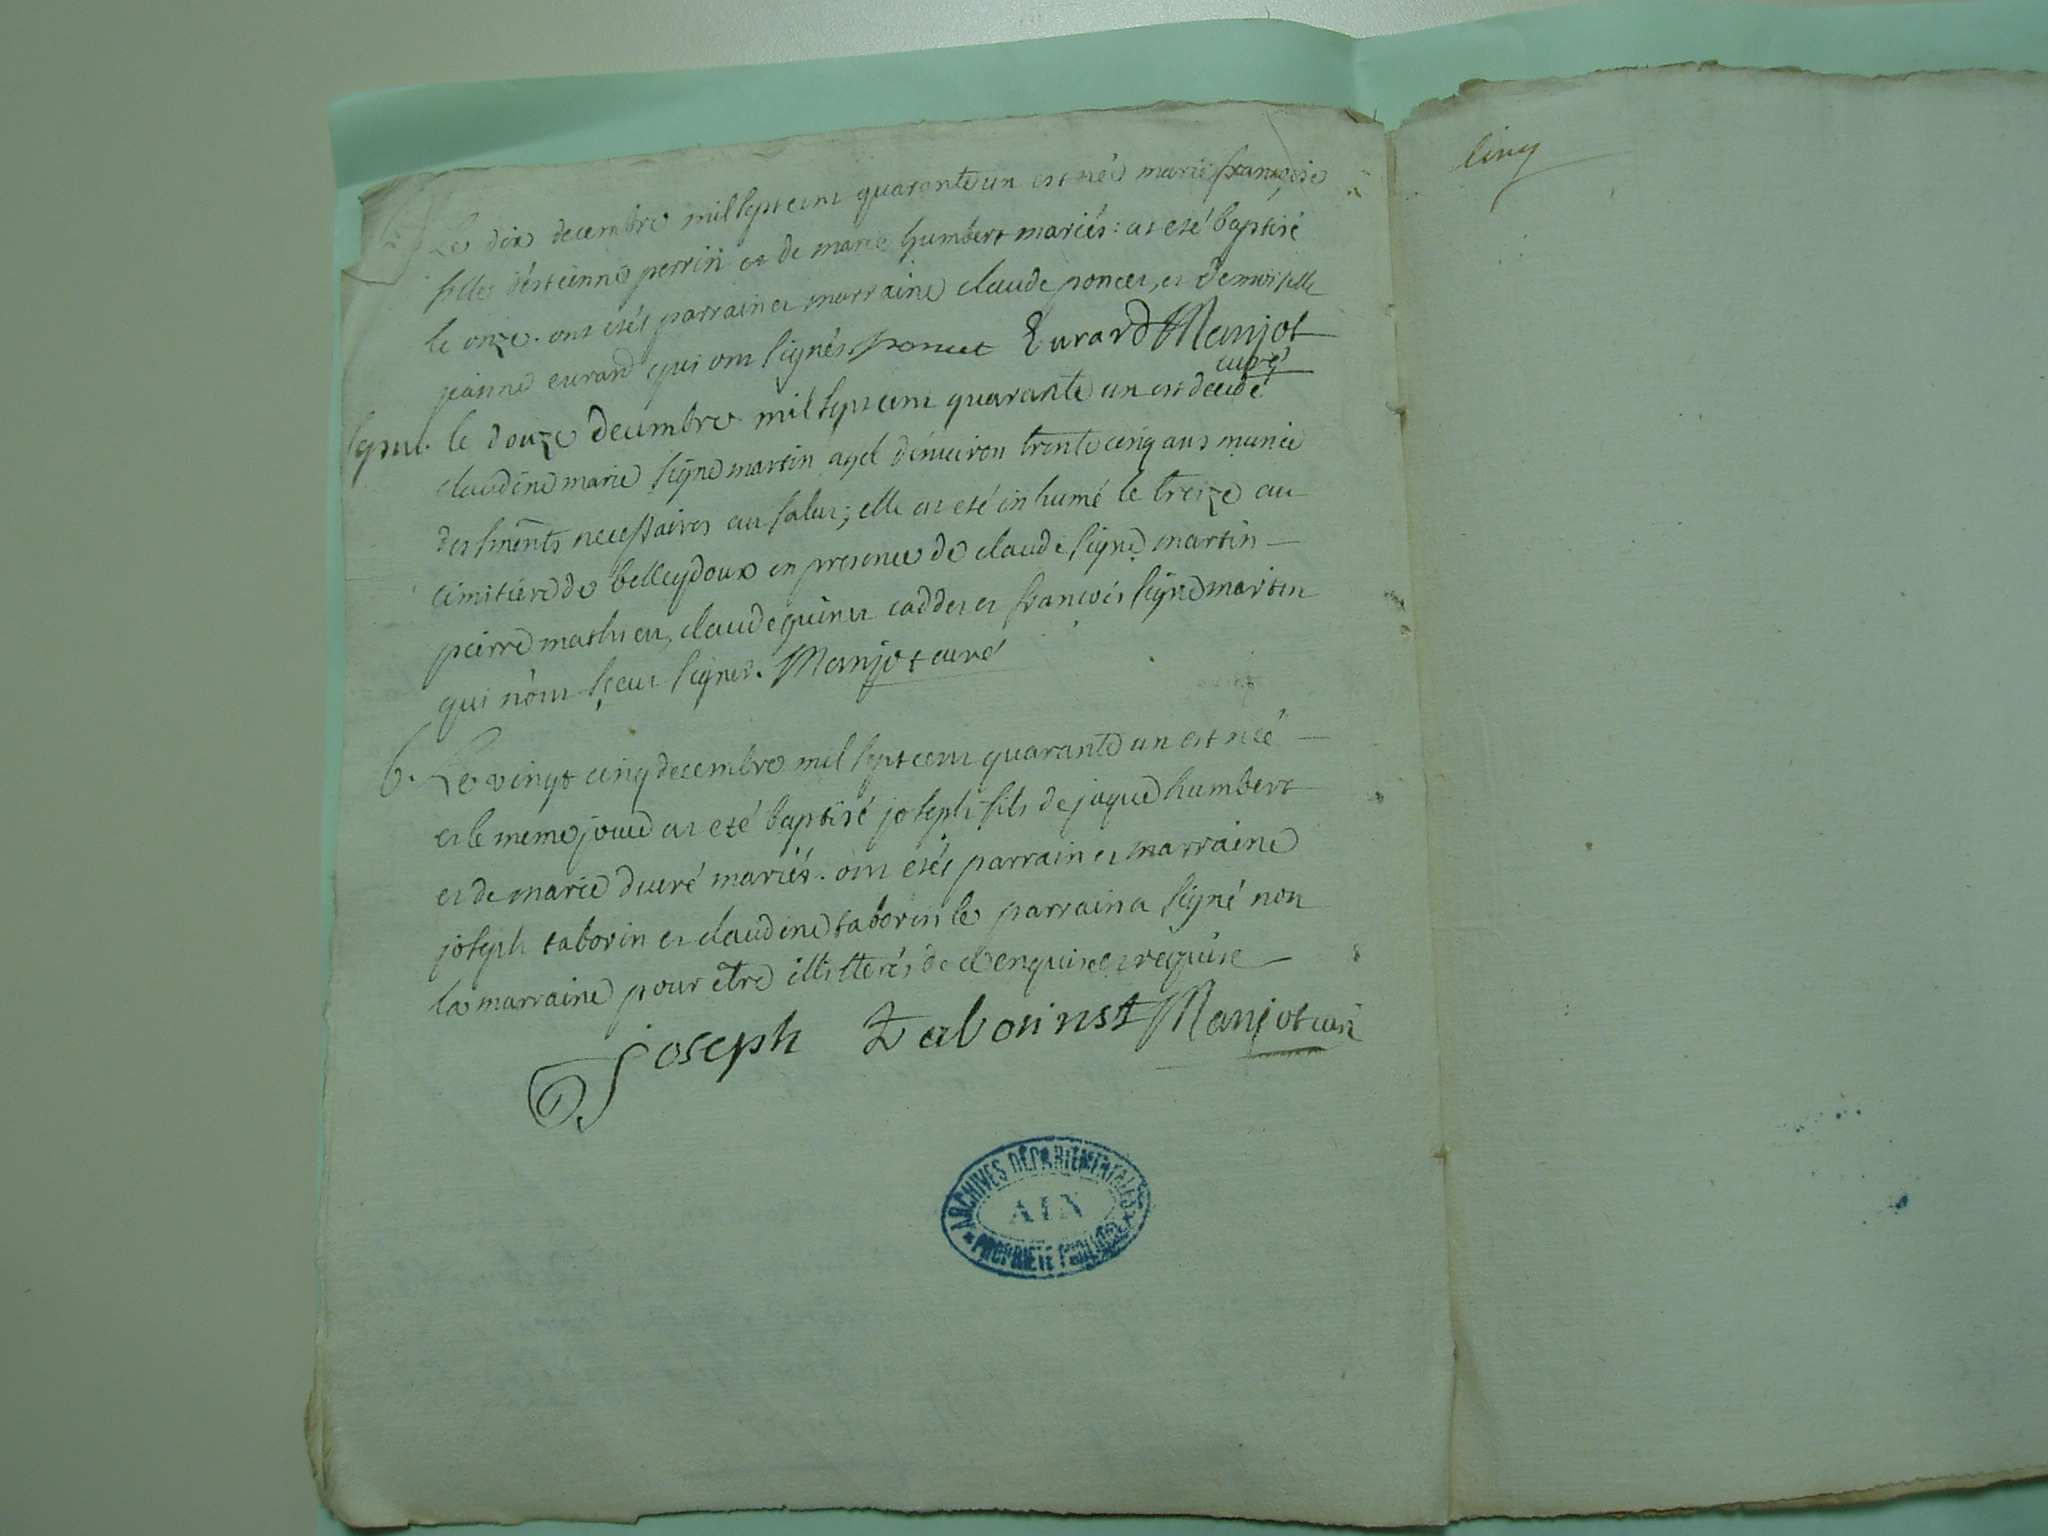 b. Le dix decembre mil sept cent quarante un est née marie françoise
fille d'estienne perrin et de marie humbert mariés : at eté baptisé
le onze. ont etés parrain et marraine claude poncet, et demoiselle
jeanne evrard qui ont signés. poncet Evrard Manjot
curé
sepul. le douze decembre mil sept cent quarante un est decedé
claudine marie seigne martin agé d'enuiron trente cinq ans munie
des smēnts necessaires au salut ; elle at eté inhumé le treize au
cimitiére de belleydoux en presence de claude seigne martin
peirre mathieu, claude guinet caddet et francois seigne martin
qui n'ont sçeu signer. Manjot curé
b. Le vingt cinq decembre mil sept cent quarante un est née
et le meme jour at eté baptisé joseph fils de jaque humbert
et de marie ducré mariés. ont etés parrain et marraine
joseph taborin et claudine taborin le parrain a signé non
la marraine pour être illitterés de ce enquise et requise
joseph tabourinst Manjot curé
cinq
ARCHIVES DÉPARTEMENTALES
AIN
PROPRIÉTÉ PUBLIQUE